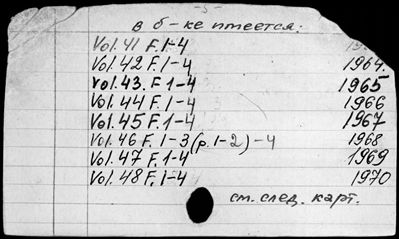 -5-
в б-ке имеется:
Vol. 41 F. 1-4
Vol. 42 F. 1-4 1964.
Vol. 43. F. 1-4 1965
Vol. 44 F. 1-4 1966
Vol. 45 F. 1-4 1967
Vol. 46 F. 1-3 (p. 1-2) -4 1968
Vol. 47 F. 1-4 1969
Vol. 48 F. 1-4 1970
см. след. карт.